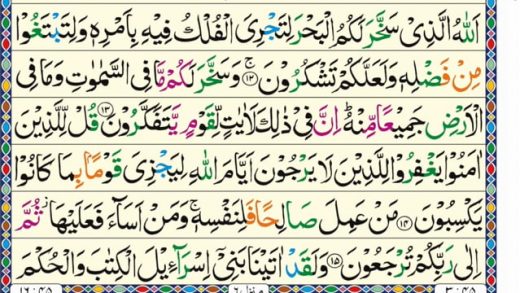 اَللّٰهُ الَّذِىۡ سَخَّرَ لَكُمُ الۡبَحۡرَ لِتَجۡرِىَ الۡفُلۡكُ فِيۡهِ بِاَمۡرِهٖ وَلِتَبۡتَغُوۡا
مِنۡ فَضۡلِهٖ وَلَعَلَّكُمۡ تَشۡكُرُوۡنَ ۚ‏ ﴿۱۲﴾ وَسَخَّرَ لَكُمۡ مَّا فِى السَّمٰوٰتِ وَمَا فِى
الۡاَرۡضِ جَمِيۡعًا مِّنۡهُ‌ ؕ اِنَّ فِىۡ ذٰلِكَ لَاٰيٰتٍ لِّقَوۡمٍ يَّتَفَكَّرُوۡنَ‏ ﴿۱۳﴾ قُلْ لِّلَّذِيۡنَ
اٰمَنُوۡا يَغۡفِرُوۡا لِلَّذِيۡنَ لَا يَرۡجُوۡنَ اَيَّامَ اللّٰهِ لِيَجۡزِىَ قَوۡمًۢا بِمَا كَانُوۡا
يَكۡسِبُوۡنَ‏ ﴿۱۴﴾ مَنۡ عَمِلَ صَالِحًا فَلِنَفۡسِهٖ‌ۚ وَمَنۡ اَسَآءَ فَعَلَيۡهَا ثُمَّ
اِلٰى رَبِّكُمۡ تُرۡجَعُوۡنَ‏ ﴿۱۵﴾ وَلَقَدۡ اٰتَيۡنَا بَنِىۡۤ اِسۡرَآءِيۡلَ الۡكِتٰبَ وَالۡحُكۡمَ